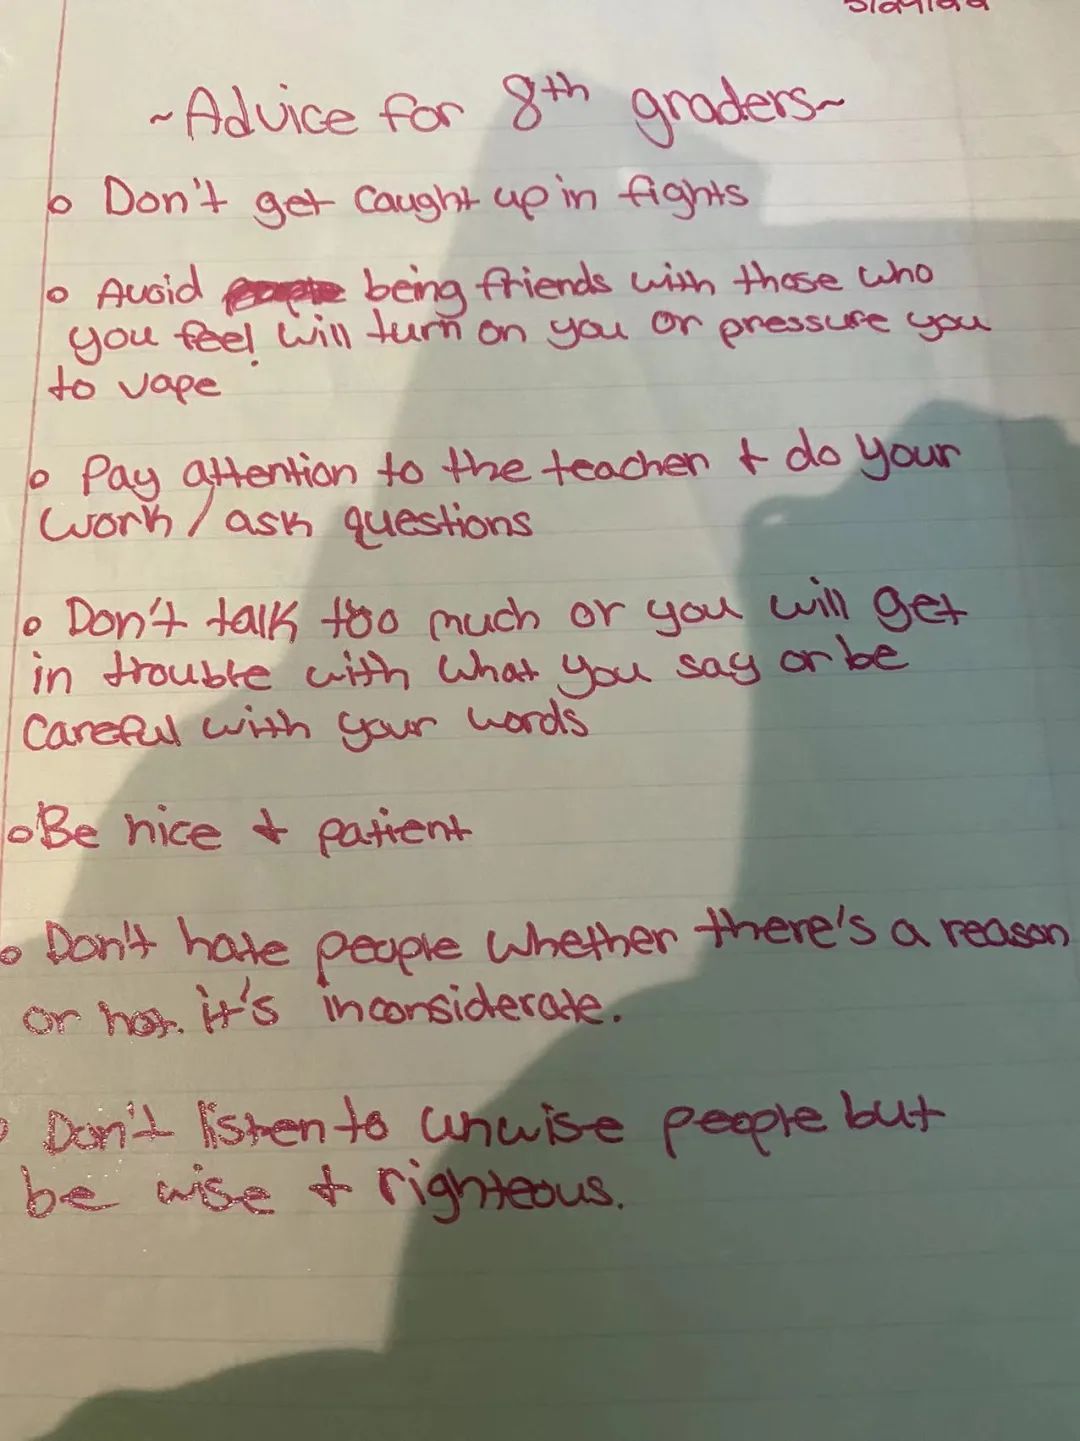 ~Advice for 8th graders~
o Don't get caught up in fights
o Avoid being friends with those who
you feel will turn on you or pressure you
to vape
o Pay attention to the teacher + do your
work / ask questions
o Don't talk too much or you will get
in trouble with what you say or be
careful with your words
o Be nice + patient
o Don't hate people whether there's a reason
or not. it's inconsiderate.
o Don't listen to unwise people but
be wise + righteous.